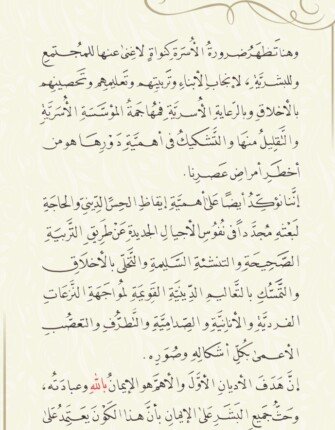 وهنا تَظهَرُ ضرورةُ الأُسرَةِ كنواةٍ لا غِنى عنها للمُجتمعِ
وللبشريَّةِ، لإنجابِ الأبناءِ وتَربيتِهم وتَعليمِهم وتَحصِينِهم
بالأخلاقِ وبالرعايةِ الأُسريَّةِ فمُهاجَمةُ المؤسَّسةِ الأُسَريَّةِ
والتَّقلِيلُ منها والتَّشكيكُ في أهميَّةِ دَورِها هو من
أخطَرِ أمراضِ عَصرِنا.
إنَّنا نؤكِّدُ أيضًا على أهميَّةِ إيقاظِ الحِسِّ الدِّينيِّ والحاجةِ
لبَعْثِه مُجدَّدًا في نُفُوسِ الأجيالِ الجديدةِ عن طَريقِ التَّربيةِ
الصَّحِيحةِ والتنشئةِ السَّليمةِ والتحلِّي بالأخلاقِ
والتَّمسُّكِ بالتعاليمِ الدِّينيَّةِ القَوِيمةِ لمُواجَهةِ النَّزعاتِ
الفرديَّةِ والأنانيَّةِ والصِّداميَّةِ والتَّطرُّفِ والتعصُّبِ
الأعمى بكُلِّ أشكالِه وصُوَرِه.
إنَّ هَدَفَ الأديانِ الأوَّلَ والأهمَّ هو الإيمانُ باللهِ وعبادتُه،
وحَثُّ جميعِ البَشَرِ على الإيمانِ بأنَّ هذا الكونَ يَعتَمِدُ على